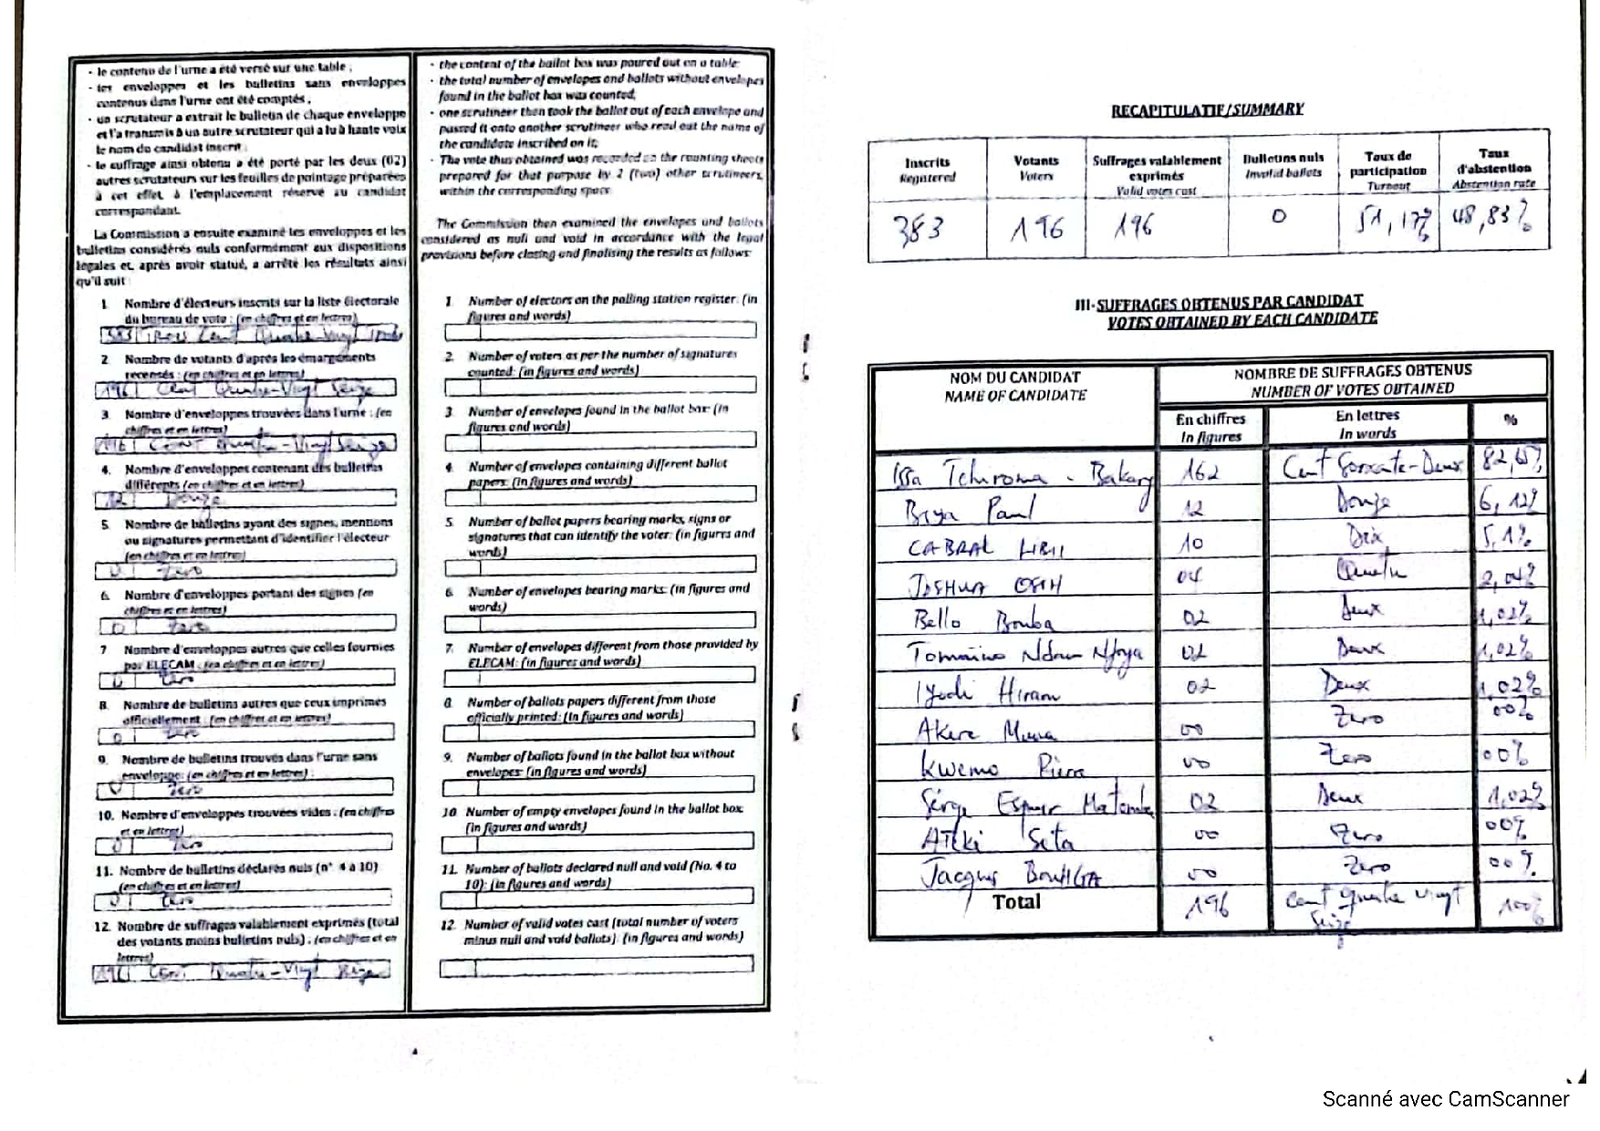 - le contenu de l'urne a été versé sur une table ;
- les enveloppes et les bulletins sans enveloppes
contenus dans l'urne ont été comptés ;
- un scrutateur a extrait le bulletin de chaque enveloppe
et l'a transmis à un autre scrutateur qui a lu à haute voix
le nom du candidat inscrit ;
- le suffrage ainsi obtenu a été porté par les deux (02)
autres scrutateurs sur les feuilles de pointage préparées
à cet effet à l'emplacement réservé au candidat
correspondant.
La Commission a ensuite examiné les enveloppes et les
bulletins considérés nuls conformément aux dispositions
légales et, après avoir statué, a arrêté les résultats ainsi
qu'il suit :
1. Nombre d'électeurs inscrits sur la liste électorale
du bureau de vote : (en chiffres et en lettres)
383 Trois Cent Quatre-Vingt Trois
2. Nombre de votants d'après les émargements
recensés : (en chiffres et en lettres)
196 Cent Quatre-Vingt Seize
3. Nombre d'enveloppes trouvées dans l'urne : (en
chiffres et en lettres)
196 Cent Quatre-Vingt Seize
4. Nombre d'enveloppes contenant des bulletins
différents (en chiffres et en lettres)
12 Douze
5. Nombre de bulletins ayant des signes, mentions
ou signatures permettant d'identifier l'électeur
(en chiffres et en lettres)
0 Zero
6. Nombre d'enveloppes portant des signes (en
chiffres et en lettres)
0 Zero
7 Nombre d'enveloppes autres que celles fournies
par ELECAM : (en chiffres et en lettres)
0 Zero
8. Nombre de bulletins autres que ceux imprimés
officiellement : (en chiffres et en lettres)
0 Zero
9. Nombre de bulletins trouvés dans l'urne sans
enveloppe: (en chiffres et en lettres) :
0 Zero
10. Nombre d'enveloppes trouvées vides : (en chiffres
et en lettres)
0 Zero
11. Nombre de bulletins déclarés nuls (n° 4 à 10)
(en chiffres et en lettres)
0 Zero
12. Nombre de suffrages valablement exprimés (total
des votants moins bulletins nuls) : (en chiffres et en
lettres)
196 Cent Quatre-Vingt Seize
- the content of the ballot box was poured out on a table:
- the total number of envelopes and ballots without envelopes
found in the ballot box was counted;
- one scrutineer then took the ballot out of each envelope and
passed it onto another scrutineer who read out the name of
the candidate inscribed on it;
- The vote thus obtained was recorded on the counting sheets
prepared for that purpose by 2 (two) other scrutineers,
within the corresponding space.
The Commission then examined the envelopes and ballots
considered as null and void in accordance with the legal
provisions before closing and finalising the results as follows:
1. Number of electors on the polling station register: (in
figures and words)
2. Number of voters as per the number of signatures
counted: (in figures and words)
3. Number of envelopes found in the ballot box: (in
figures and words)
4. Number of envelopes containing different ballot
papers: (in figures and words)
5. Number of ballot papers bearing marks, signs or
signatures that can identify the voter: (in figures and
words)
6. Number of envelopes bearing marks: (in figures and
words)
7. Number of envelopes different from those provided by
ELECAM: (in figures and words)
8. Number of ballots papers different from those
officially printed: (in figures and words)
9. Number of ballots found in the ballot box without
envelopes: (in figures and words)
10 Number of empty envelopes found in the ballot box
(in figures and words)
11. Number of ballots declared null and void (No. 4 to
10): (in figures and words)
12. Number of valid votes cast (total number of voters
minus null and void ballots): (in figures and words)
RECAPITULATIF/SUMMARY
Inscrits Registered Votants Voters Suffrages valablement exprimés Valid votes cast Bulletins nuls Invalid ballots Taux de participation Turnout Taux d'abstention Abstention rate
383 196 196 0 51,17% 48,83%
III-SUFFRAGES OBTENUS PAR CANDIDAT
VOTES OBTAINED BY EACH CANDIDATE
NOM DU CANDIDAT NOMBRE DE SUFFRAGES OBTENUS
NAME OF CANDIDATE NUMBER OF VOTES OBTAINED
En chiffres En lettres %
In figures In words
Issa Tchiroma - Bakary 162 Cent Soixante-Deux 82,65%
Biya Paul 12 Douze 6,12%
CABRAL LIBII 10 Dix 5,1%
JOSHUA OSIH 04 Quatre 2,04%
Bello Bouba 02 Deux 1,02%
Tomaino Ndam Njoya 02 Deux 1,02%
Iyodi Hiram 02 Deux 1,02%
Akere Muna 00 Zero 00%
Kwemo Pierre 00 Zero 00%
Serge Espoir Matomba 02 Deux 1,02%
Ateki Seta 00 Zero 00%
Jacques Bouhga 00 Zero 00%
Total 196 Cent quatre vingt Seize 100%
Scanné avec CamScanner